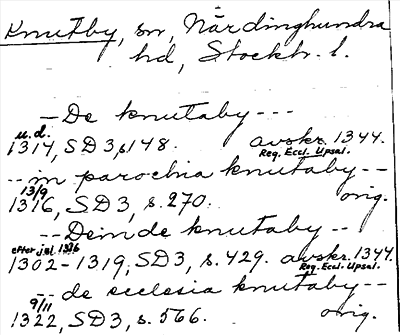 Knutby, sn, Närdinghundra
hd, Stockh. l.
-- De knutaby ---
u.d.
1314, SD 3, s 148. avskr. 1344.
Reg. Eccl. Upsal.
-- in parochia knutaby --
13/9
1316, SD 3, s. 270. orig.
-- Deinde knutaby --
efter jul 1316
1302-1319, SD 3, s. 429. avskr. 1344.
Reg. Eccl. Upsal.
-- de ecclesia knutaby --
9/11
1322, SD 3, s. 566. orig.